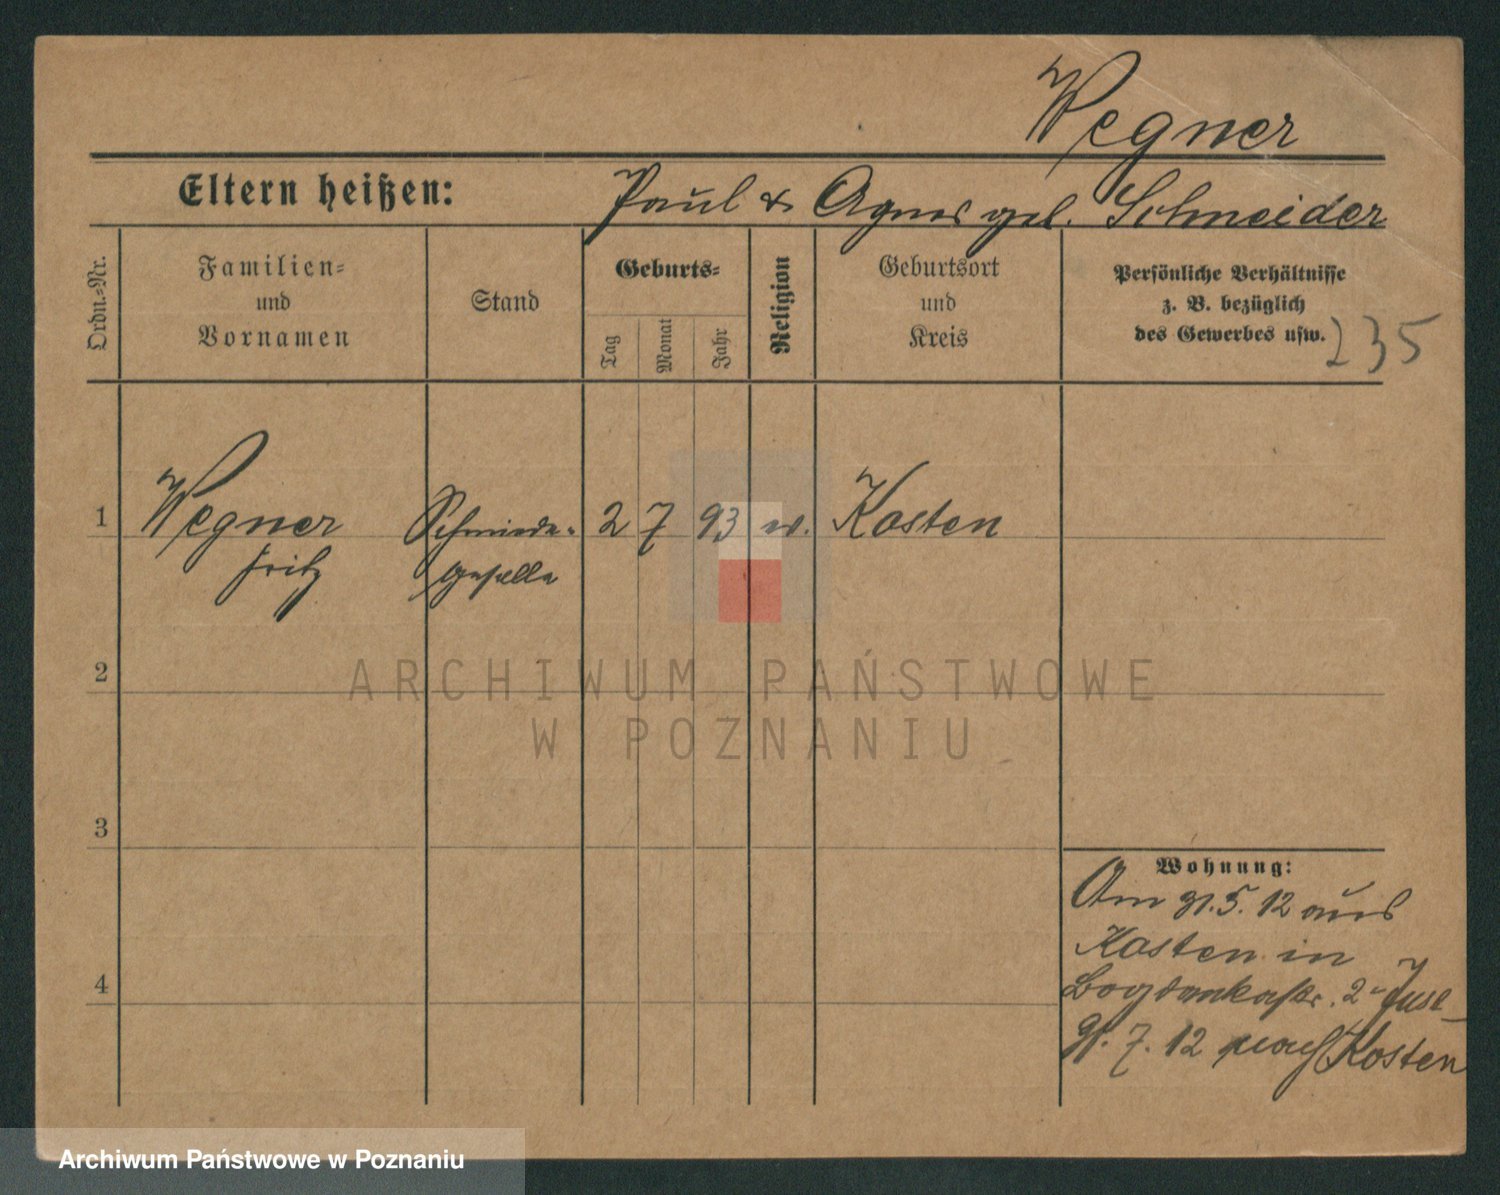 Wegner
Eltern heißen: Paul & Agnes geb. Schneider
Ordn.-Nr.
Familien-
und
Vornamen
Stand
Geburts-
Tag
Monat
Jahr
Religion
Geburtsort
und
Kreis
Persönliche Verhältnisse
z. B. bezüglich
des Gewerbes usw.
235
1 Wegner Schmiede- 2 7 93 ev. Kosten
Fritz geselle
2
ARCHIWUM PAŃSTWOWE
W POZNANIU
3
4
Wohnung:
Am 5. 12 aus
Kosten in
Bogdankastr. 2
7. 12 nach Kosten
Archiwum Państwowe w Poznaniu